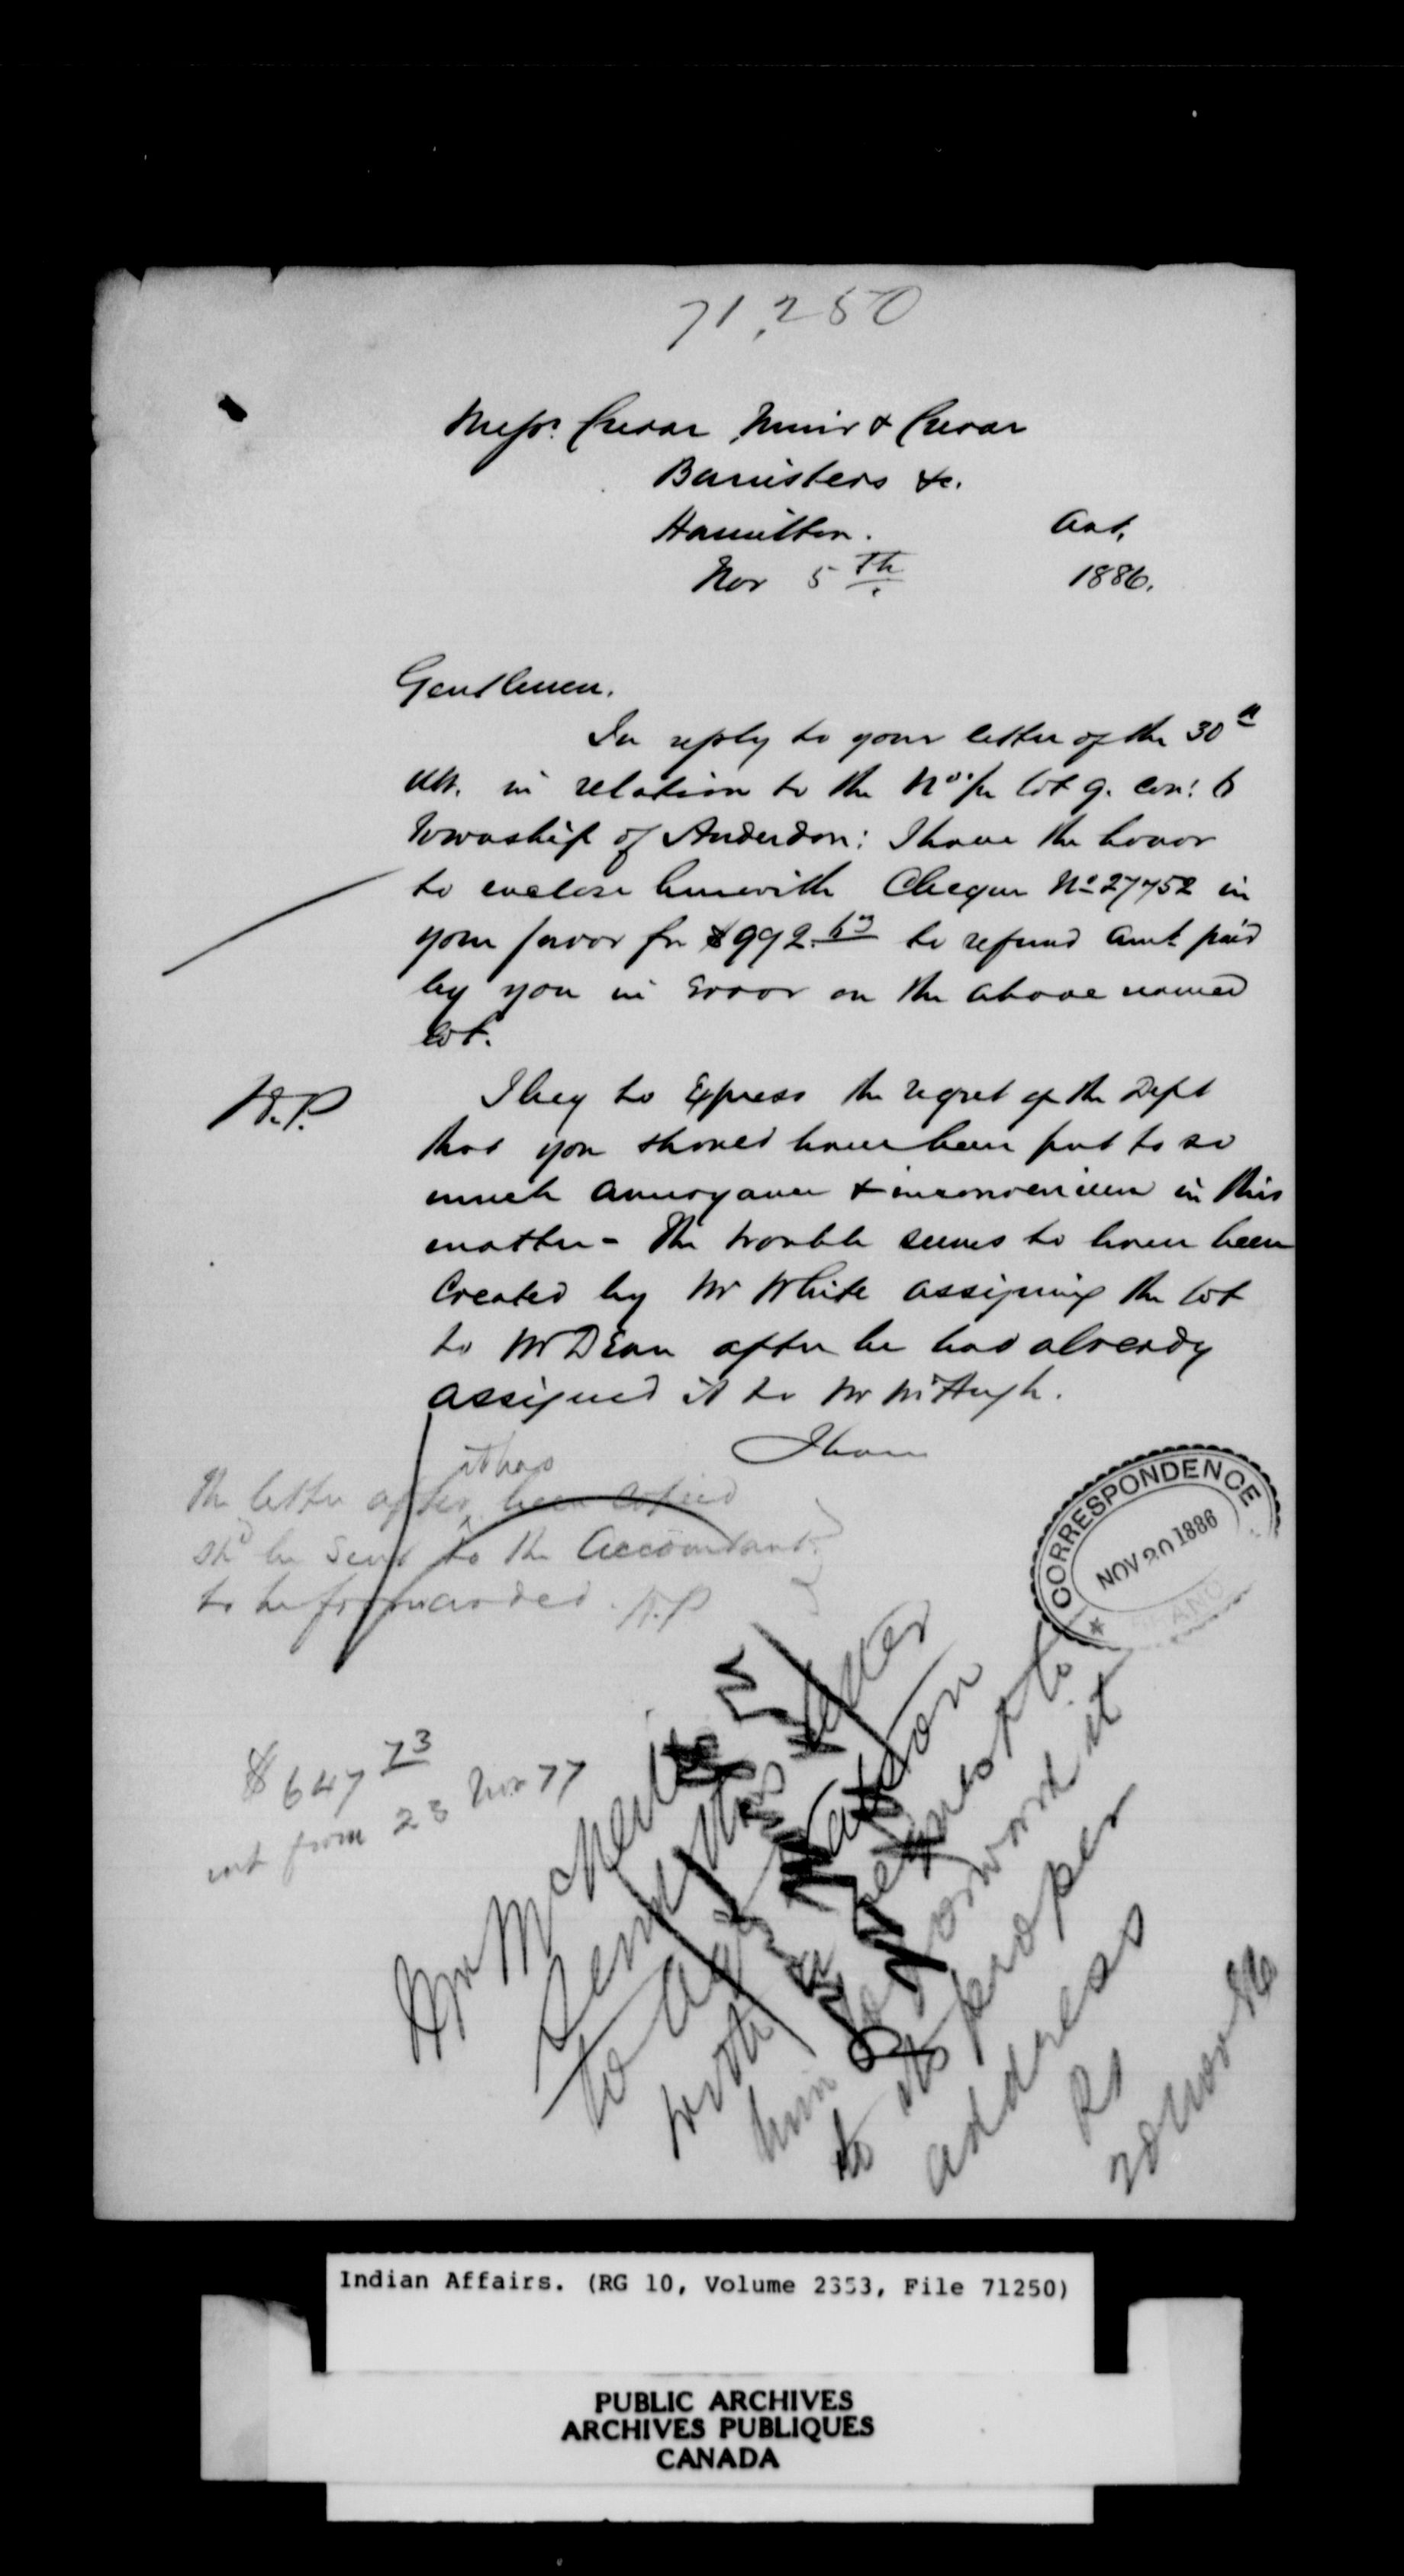 71,250
Messrs. Crerar Muir & Crerar
Barristers &c.
Hamilton. Ont.
Nov 5th 1886.
Gentlemen.
In reply to your letter of the 30th
Ult. in relation to the lot 9. con: 6
Township of Anderdon: I have the honor
to enclose herewith Cheque No 27752 in
your favor for $992. to refund amt paid
by you in Error on the above named
lot.
I beg to Express the regret of the Dept
that you should have been put to so
much annoyance & inconvenience in this
matter - The trouble seems to have been
Created by Mr White assigning the lot
to Mr Dean after he had already
assigned it to Mr McHugh.
I have
A.P.
it has
The letter after been copied
shd be sent to the Accountant
to be forwarded. A.P
CORRESPONDENCE
NOV 20 1886
$647 73
int from 23 Nov 77
Mr McNeill
Send this letter
to Agt Watson
with a request to
him to forward it
to its proper
address
20 Nov 86
Indian Affairs. (RG 10, Volume 2353, File 71250)
PUBLIC ARCHIVES
ARCHIVES PUBLIQUES
CANADA